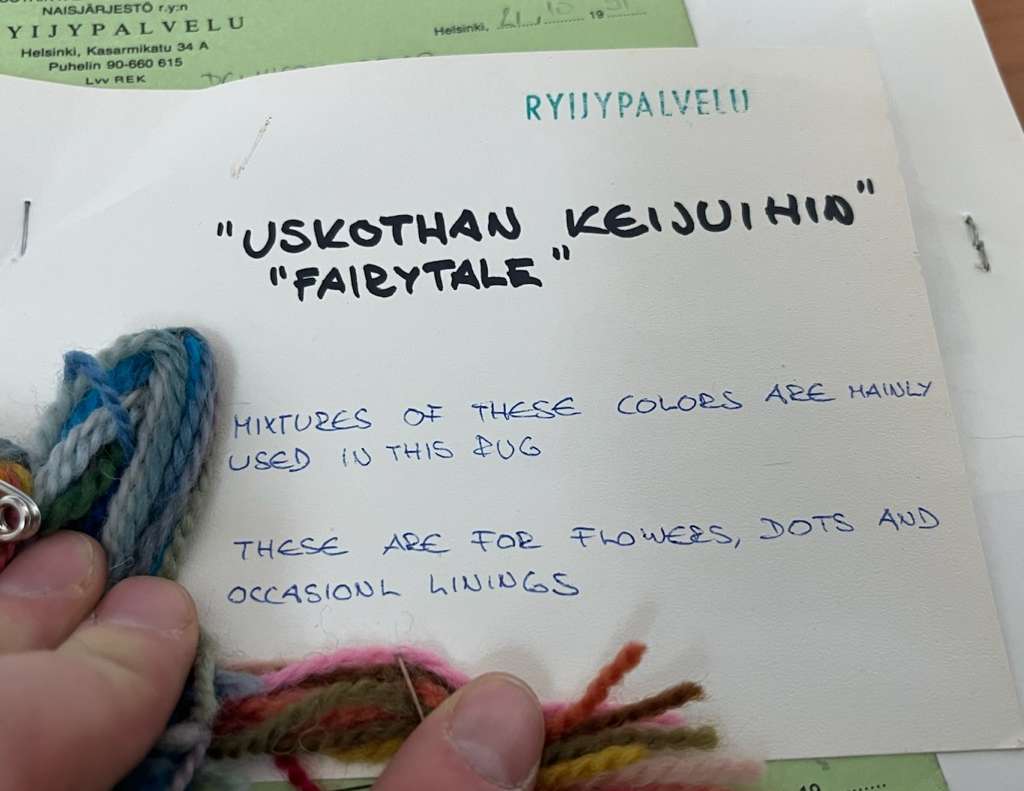 NAISJÄRJESTÖ r.y:n
YIJYPALVELU
Helsinki, Kasarmikatu 34 A
Puhelin 90-660 615
Lvv REK
Helsinki, 21.10 19 91
RYIJYPALVELU
"USKOTHAN KEIJUIHIN"
"FAIRYTALE"
MIXTURES OF THESE COLORS ARE MAINLY
USED IN THIS RUG
THESE ARE FOR FLOWERS, DOTS AND
OCCASIONL LININGS
19